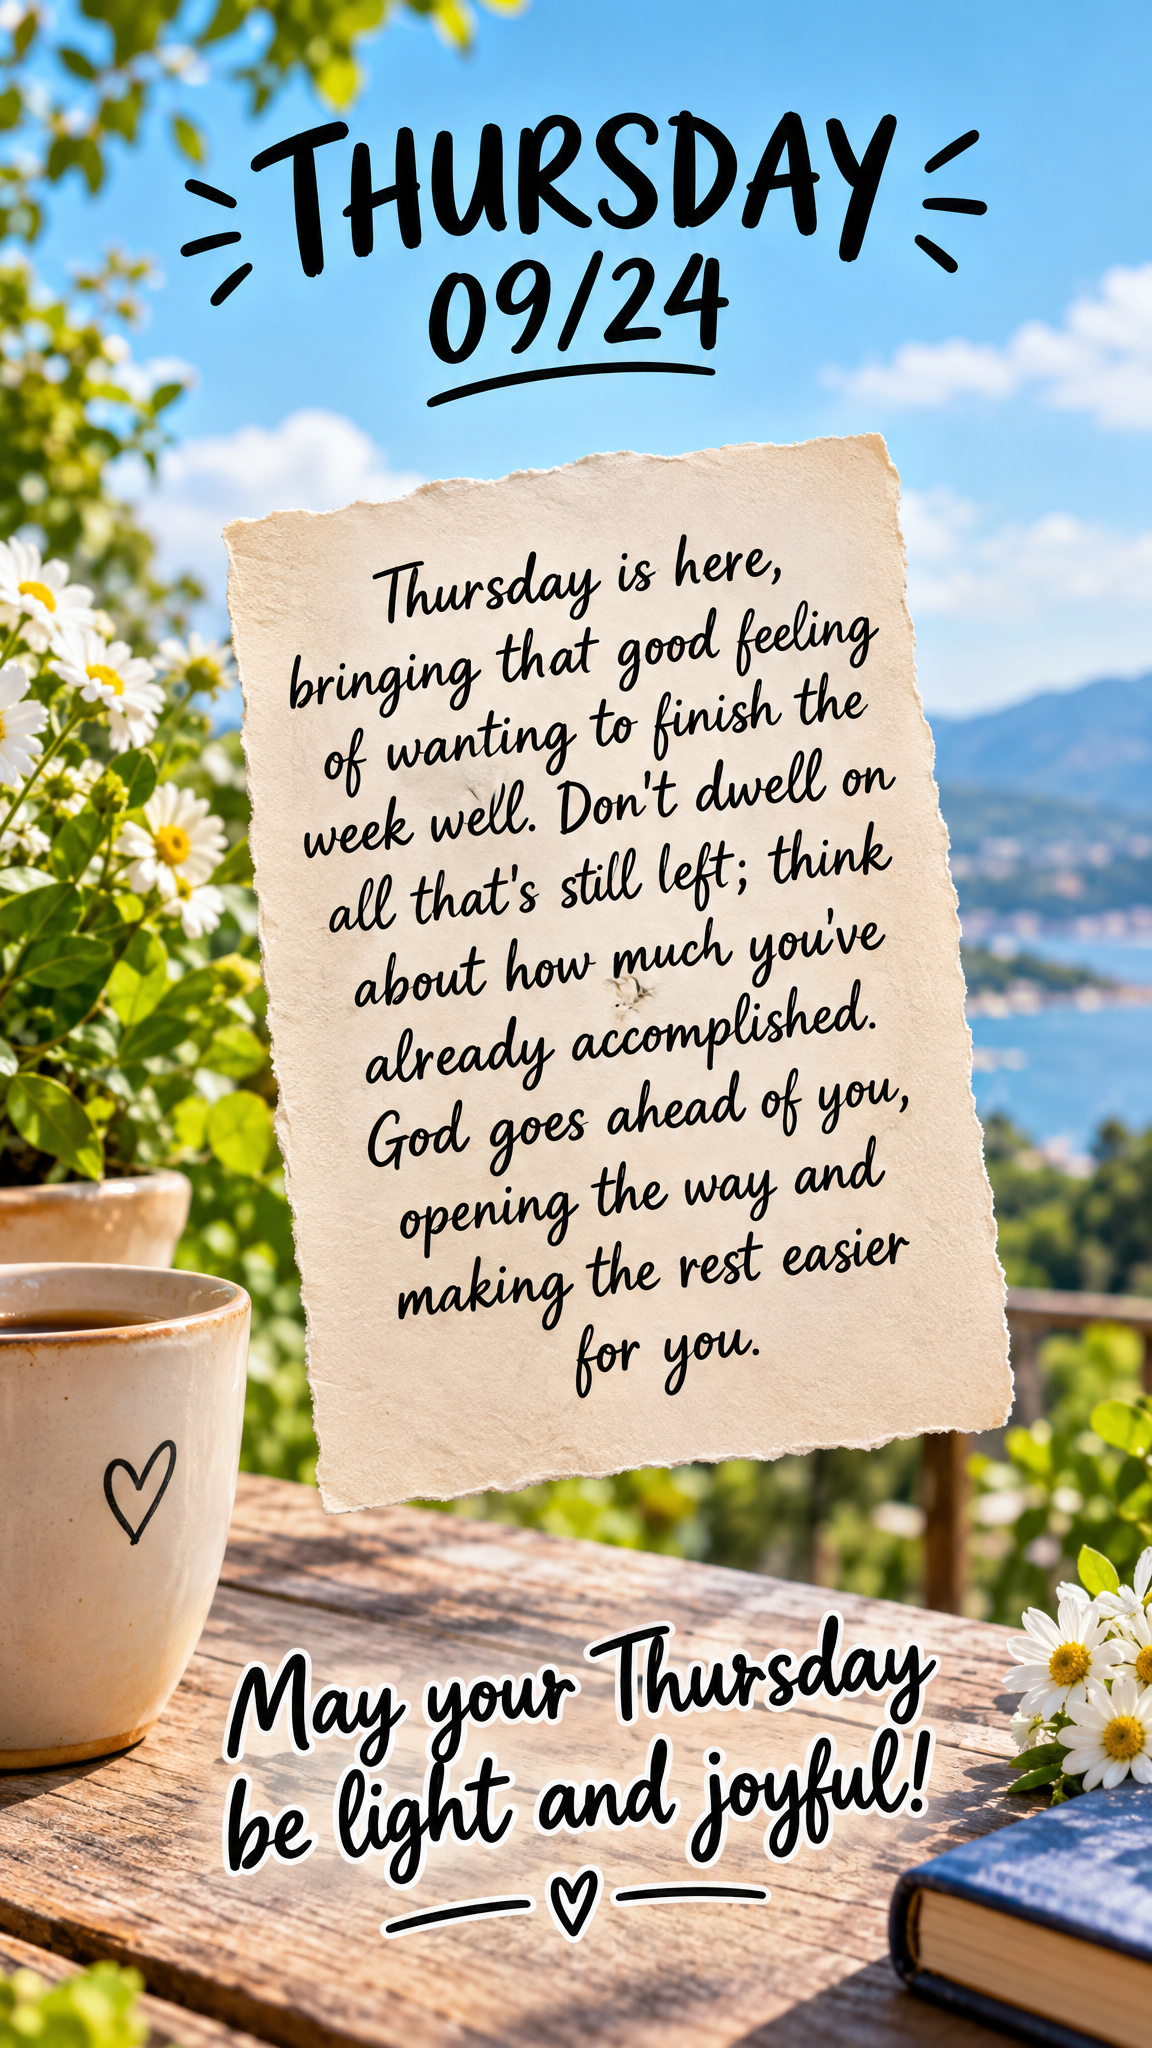 THURSDAY
09/24
Thursday is here,
bringing that good feeling
of wanting to finish the
week well. Don't dwell on
all that's still left; think
about how much you've
already accomplished.
God goes ahead of you,
opening the way and
making the rest easier
for you.
May your Thursday
be light and joyful!